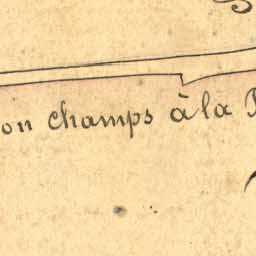 on champs à la